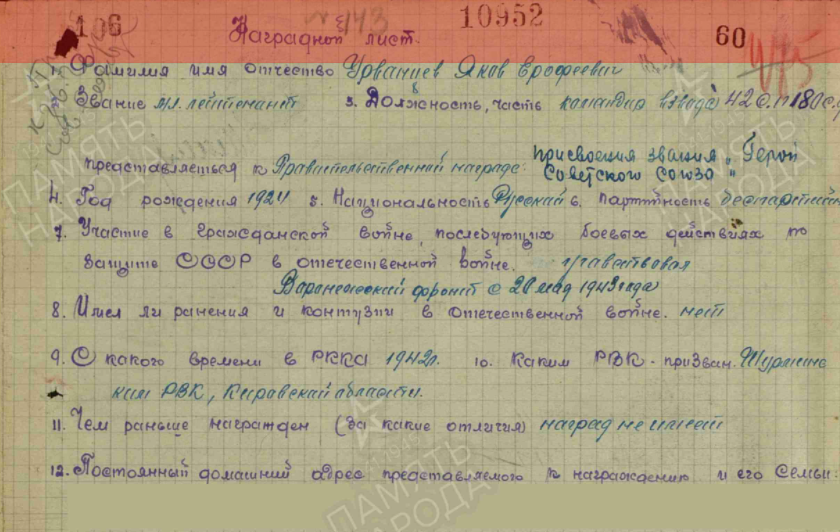 106 № 443 10952 60
Наградной лист.
1. Фамилия имя отчество Урванцев Яков Ерофеевич
2. Звание мл. лейтенант 3. Должность, часть командир взвода 42 с.п 180 с.д
представляеться к Правительственной награде присвоения звания „Герой
Советского Союза"
4. Год рождения 1924 5. Национальность Русский 6. Партийность беспартийн
7. Участие в гражданской войне, последующих боевых действиях по
защите СССР в отечественной войне. участвовал
Воронежский фронт с 20 мая 1943 года
8. Имел ли ранения и контузии в отечественной войне. нет
9. С какого времени в РККА 1942г. 10. Каким РВК - призван. Шурминс
ким РВК, Кировской области.
11. Чем раньше награжден (за какие отличия) наград не имеет
12. Постоянный домашний адрес представляемого к награждению и его семьи:
ПАМЯТЬ НАРОДА
ПАМЯТЬ НАРОДА
ПАМЯТЬ НАРОДА